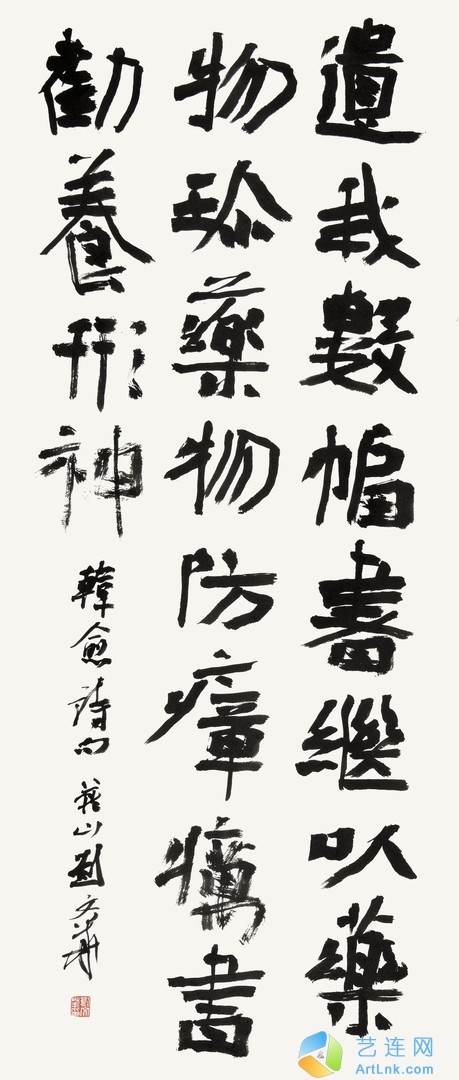 遺我數幅書繼以藥
物珎藥物防瘴癘書
勸養形神
韓愈詩句 山劉文華
艺连网
ArtLnk.com